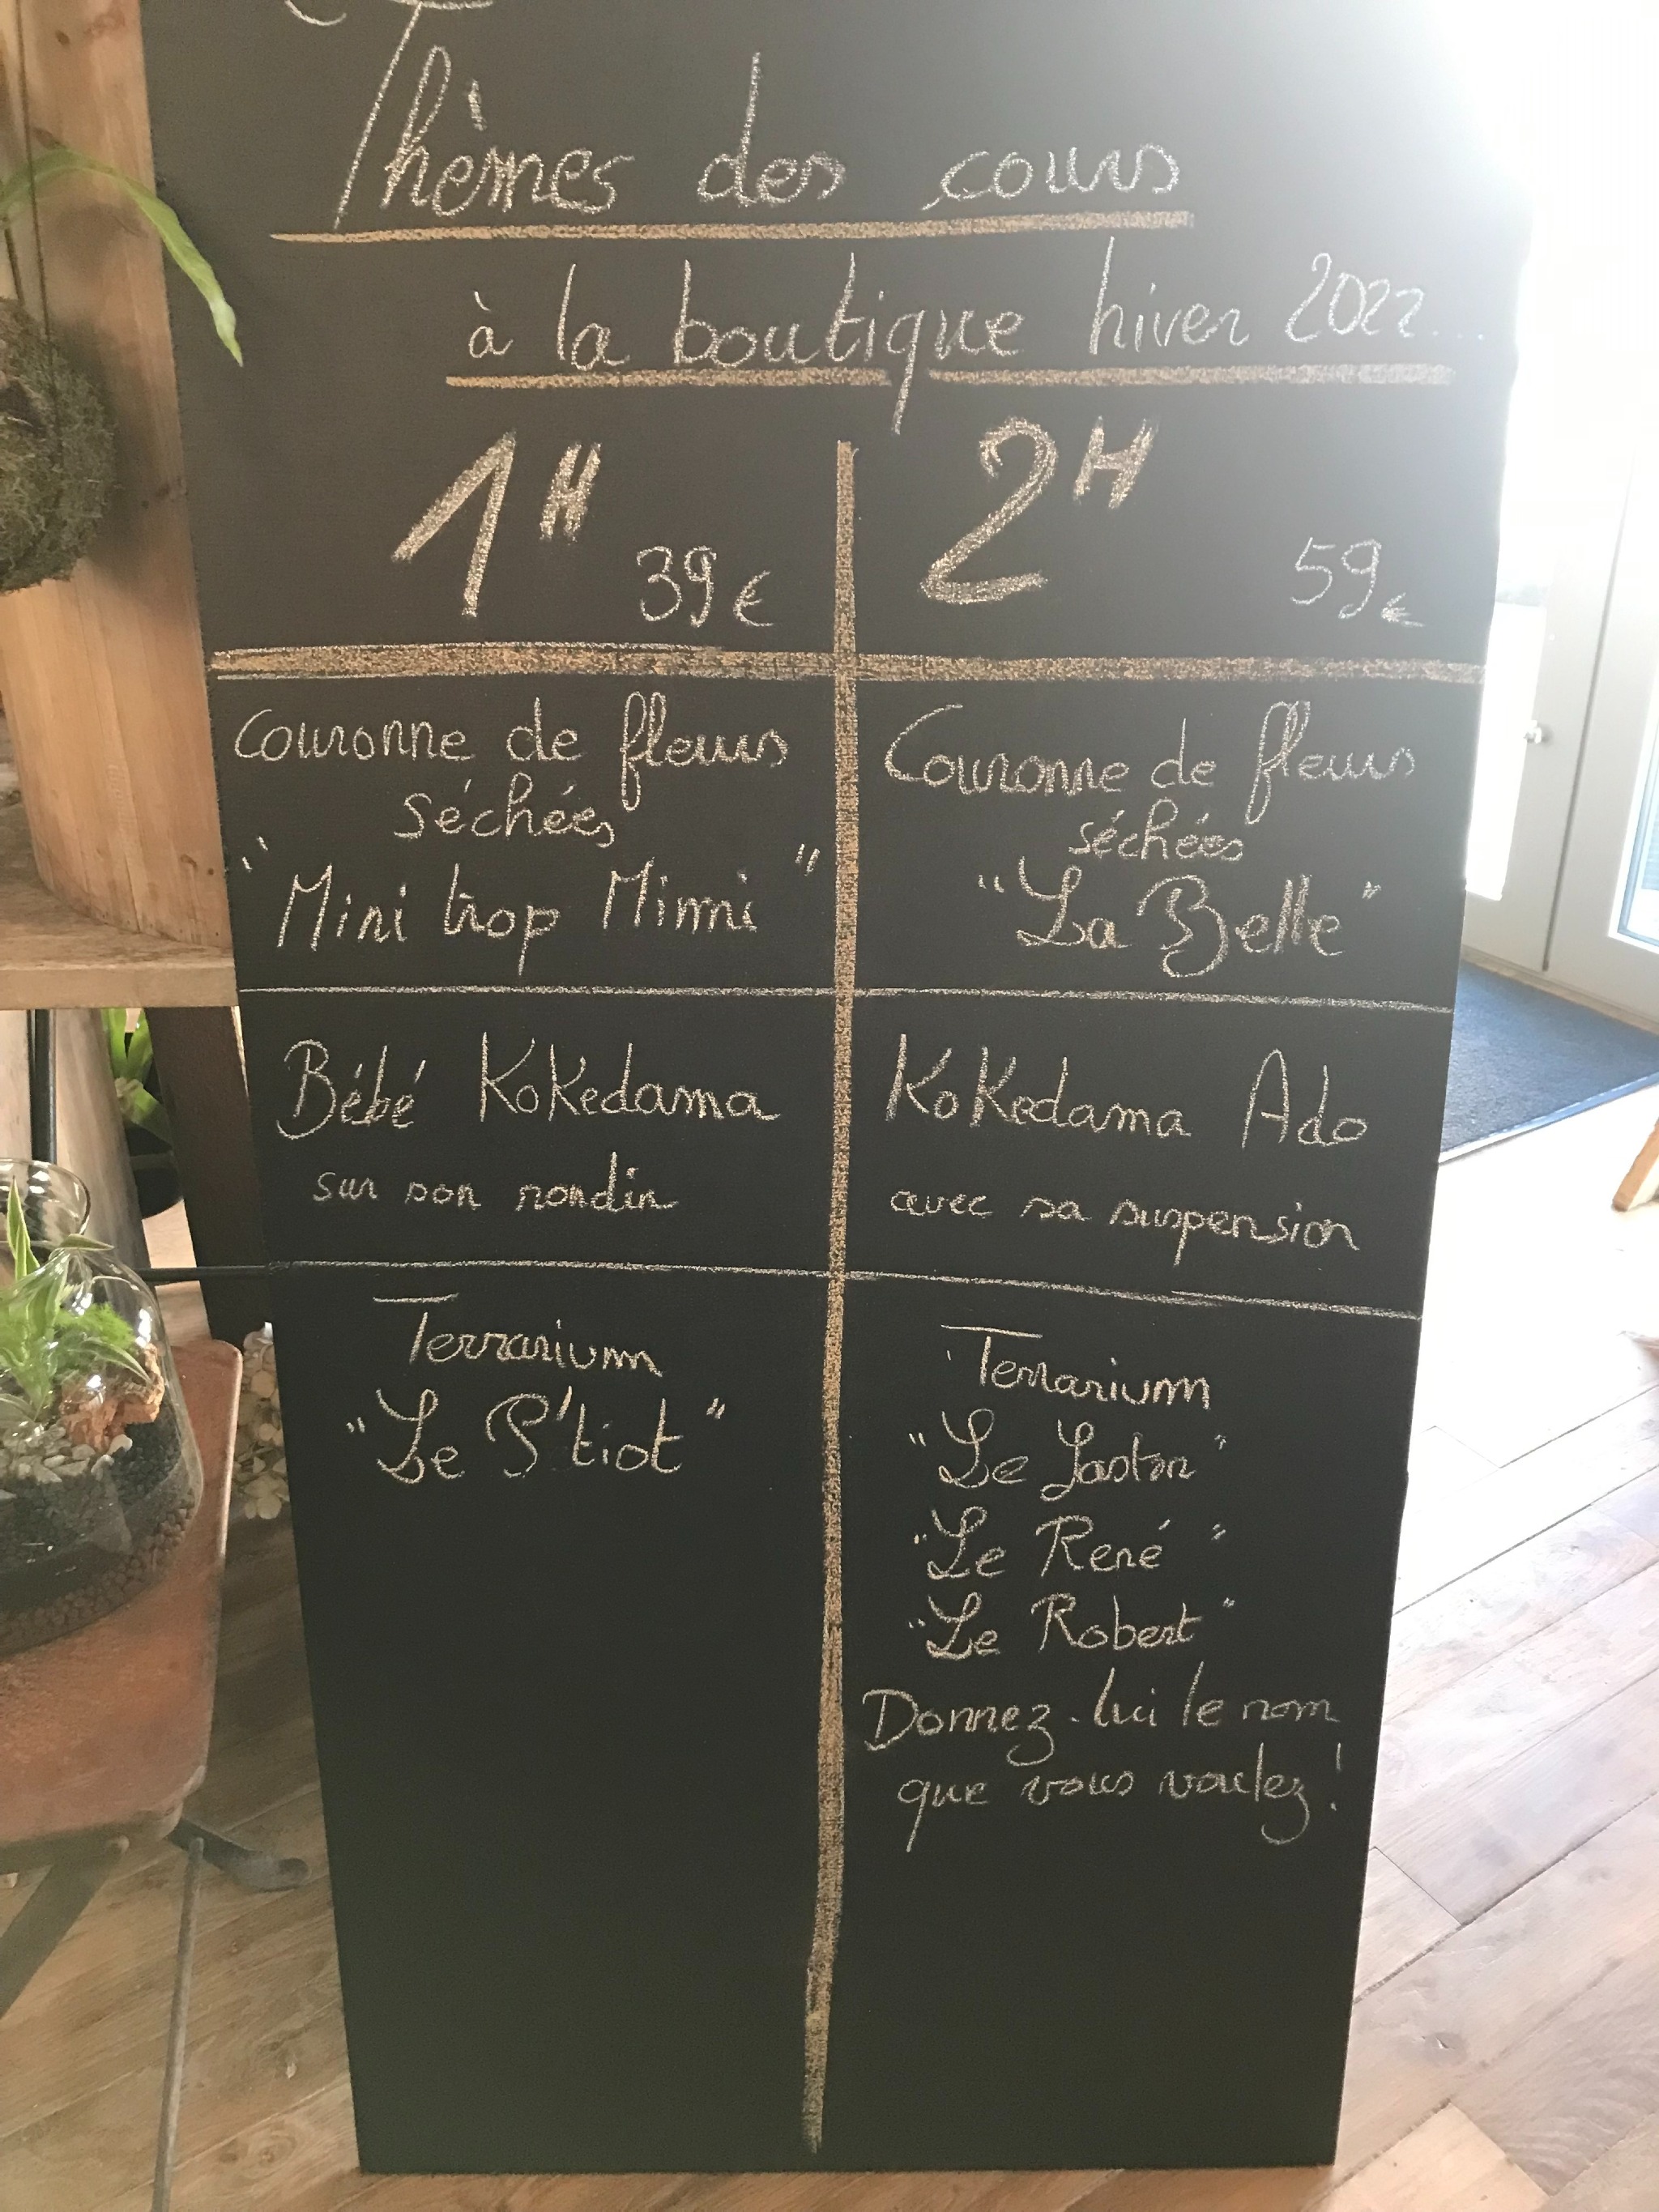 Thèmes des cours
à la boutique hiver 2022...
1H 39€
2H 59€
Couronne de fleurs
séchées
"Mini trop Mimi"
Couronne de fleurs
séchées
"La Belle"
Bébé KoKedama
sur son rondin
KoKedama Ado
avec sa suspension
Terrarium
"Le P'tiot"
Terrarium
"Le Gaston"
"Le René"
"Le Robert"
Donnez-lui le nom
que vous voulez!